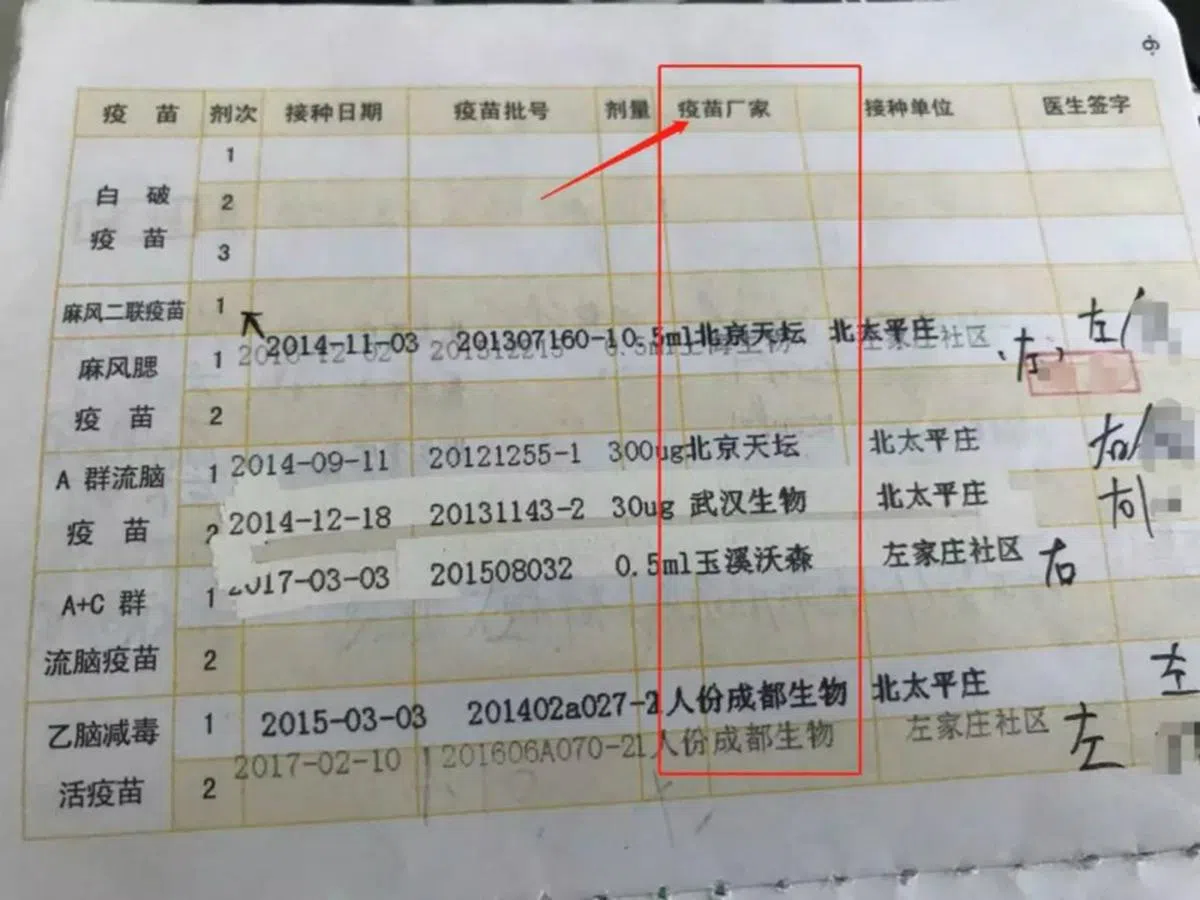 6
疫苗 剂次 接种日期 疫苗批号 剂量 疫苗厂家 接种单位 医生签字
白破疫苗 1
2
3
麻风二联疫苗 1
2014-11-03 201307160-1 0.5ml 北京天坛 北太平庄 左
麻风腮疫苗 1 左家庄社区 左
2
A 群流脑疫苗 1 2014-09-11 20121255-1 300ug 北京天坛 北太平庄 右
2 2014-12-18 20131143-2 30ug 武汉生物 北太平庄 右
A+C 群流脑疫苗 1 2017-03-03 201508032 0.5ml 玉溪沃森 左家庄社区 右
2
乙脑减毒活疫苗 1 2015-03-03 201402a027-2 人份 成都生物 北太平庄 左
2017-02-10 201606A070-2 1人份 成都生物 左家庄社区 左
2